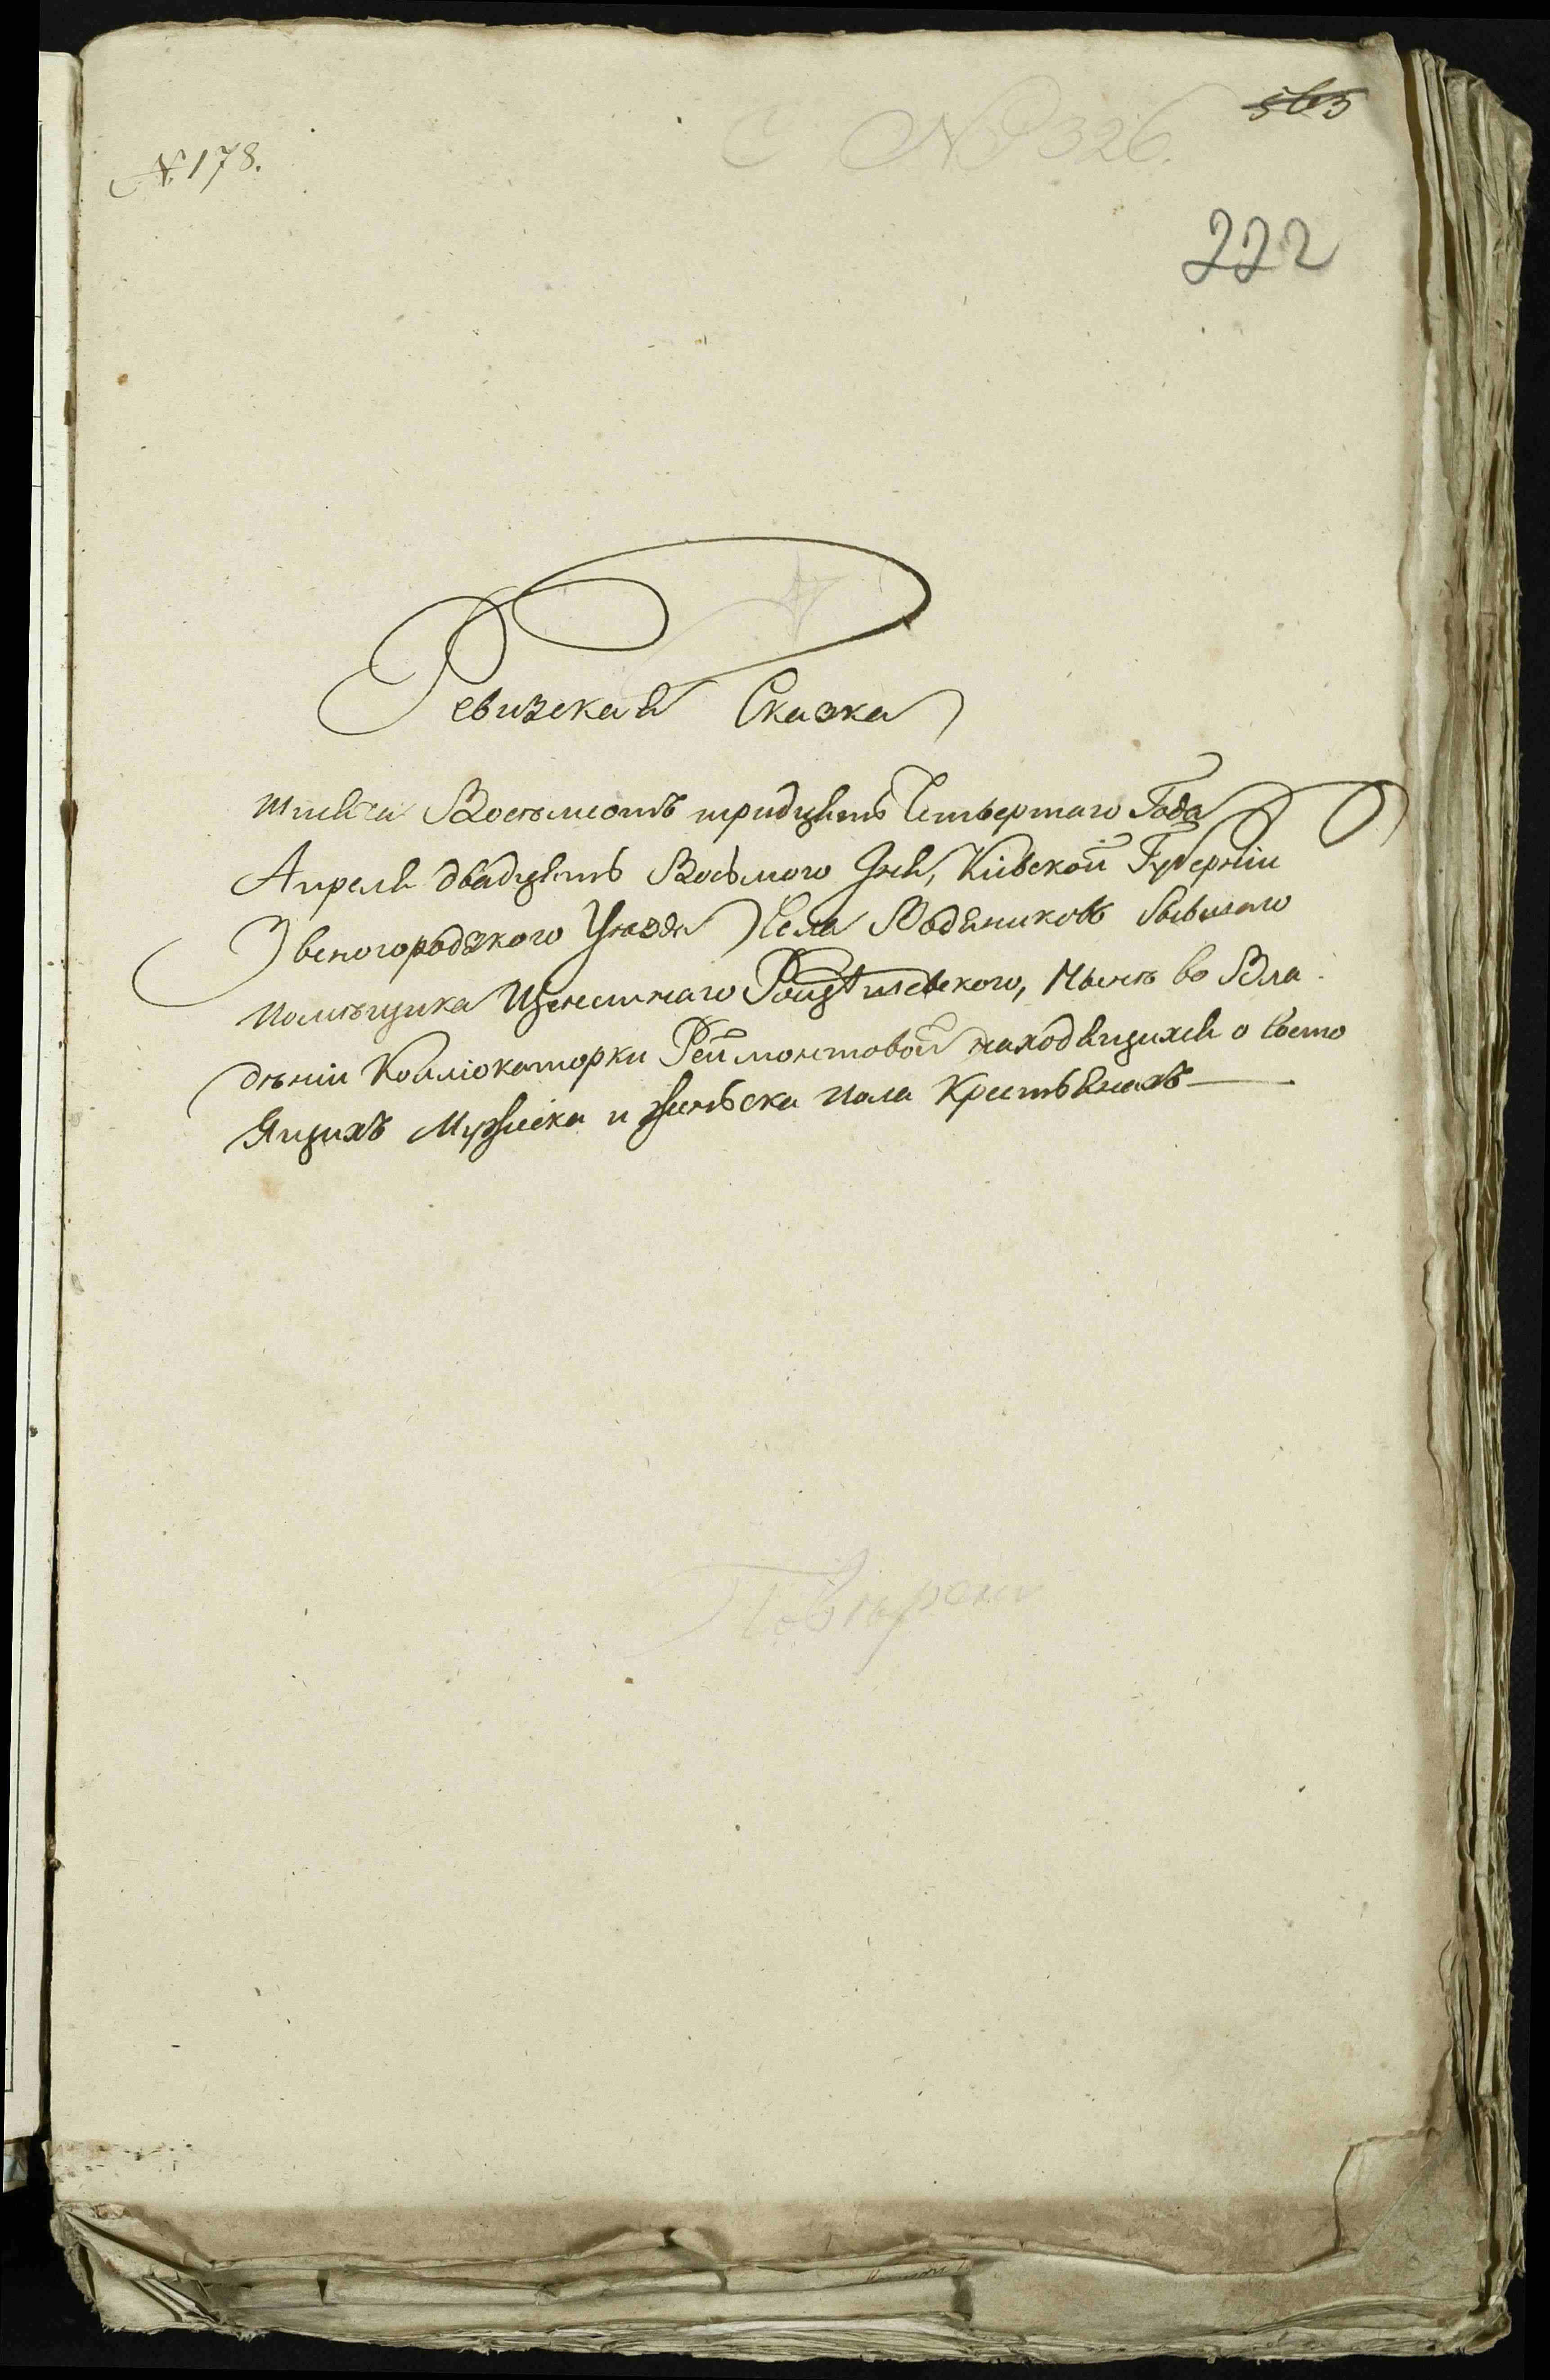 565
№ 178.
С № 326.
222
Ревизская Сказка
тысяча Восемьсотъ тридцать Четвертаго Года
Апреля двадцять Восьмого Дня, Кіевской Губерніи
Звеногородзкого Уѣзда Села Водяниковъ бывшаго
Помѣщика Ищенсинаго Рощишевского, Нынѣ во Вла-
дѣніи Колліокаторки Реймонтовой находящихся о состо
Ящихъ Мужеска и женьска пола Крестьянахъ
Повѣрена